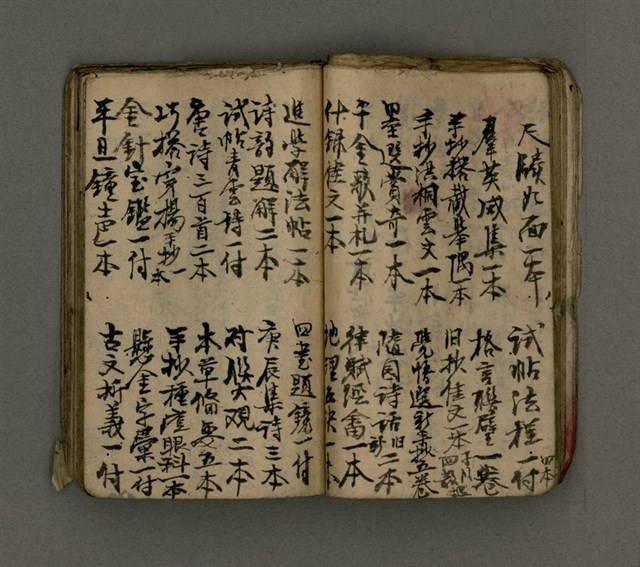 尺牘如面一本
羣英咸集一本
手抄格載舉隅一本
手抄洪桐雲文一本
墨選賞奇一本
千金裘并札一本
什錄佳文一本
試帖法程一付 四本
格言聯璧一卷
旧抄佳文一本
覺悟選新
五卷
隨園詩話旧二本
律賦經畬一本
地理五訣一本
進學解法帖一本
詩韵題解二本
試帖青雲詩一付
唐詩三百首二本
巧搭穿楊手抄一本
金針宝鑑一付
平旦鐘声一本
四書題鏡一付
庚辰集詩三本
对联大观二本
本草俻要五本
手抄種痘眼科一本
懸金字彙一付
古文析義一付